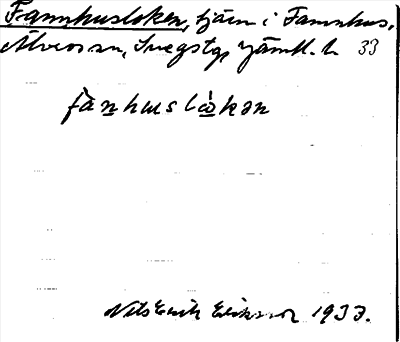 Fannhusloken, tjärn i Fannhus,
Älvros sn, Svegs tg, Jämtl. l. 33
fànhuslò̠kən
Nils Erik Eriksson 1933.